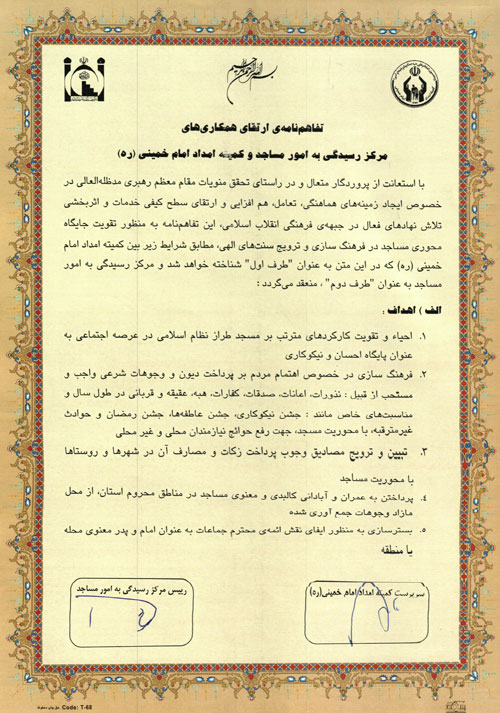 بسم الله الرحمن الرحیم
تفاهم‌نامه‌ی ارتقای همکاری‌های
مرکز رسیدگی به امور مساجد و کمیته امداد امام خمینی (ره)
با استعانت از پروردگار متعال و در راستای تحقق منویات مقام معظم رهبری مدظله‌العالی در
خصوص ایجاد زمینه‌های هماهنگی، تعامل، هم افزایی و ارتقای سطح کیفی خدمات و اثربخشی
تلاش نهادهای فعال در جبهه‌ی فرهنگی انقلاب اسلامی، این تفاهم‌نامه به منظور تقویت جایگاه
محوری مساجد در فرهنگ سازی و ترویج سنت‌های الهی، مطابق شرایط زیر بین کمیته امداد امام
خمینی (ره) که در این متن به عنوان "طرف اول" شناخته خواهد شد و مرکز رسیدگی به امور
مساجد به عنوان "طرف دوم" ، منعقد می‌گردد :
الف ) اهداف :
۱. احیاء و تقویت کارکردهای مترتب بر مسجد طراز نظام اسلامی در عرصه اجتماعی به
عنوان پایگاه احسان و نیکوکاری
۲. فرهنگ سازی در خصوص اهتمام مردم بر پرداخت دیون و وجوهات شرعی واجب و
مستحب از قبیل : نذورات، اعانات، صدقات، کفارات، هبه، عقیقه و قربانی در طول سال و
مناسبت‌های خاص مانند : جشن نیکوکاری، جشن عاطفه‌ها، جشن رمضان و حوادث
غیرمترقبه، با محوریت مسجد، جهت رفع حوائج نیازمندان محلی و غیر محلی
۳. تبیین و ترویج مصادیق وجوب پرداخت زکات و مصارف آن در شهرها و روستاها
با محوریت مساجد
۴. پرداختن به عمران و آبادانی کالبدی و معنوی مساجد در مناطق محروم استان، از محل
مازاد وجوهات جمع آوری شده
۵. بسترسازی به منظور ایفای نقش ائمه‌ی محترم جماعات به عنوان امام و پدر معنوی محله
یا منطقه
سرپرست کمیته امداد امام خمینی(ره)
رییس مرکز رسیدگی به امور مساجد
Code: T-68